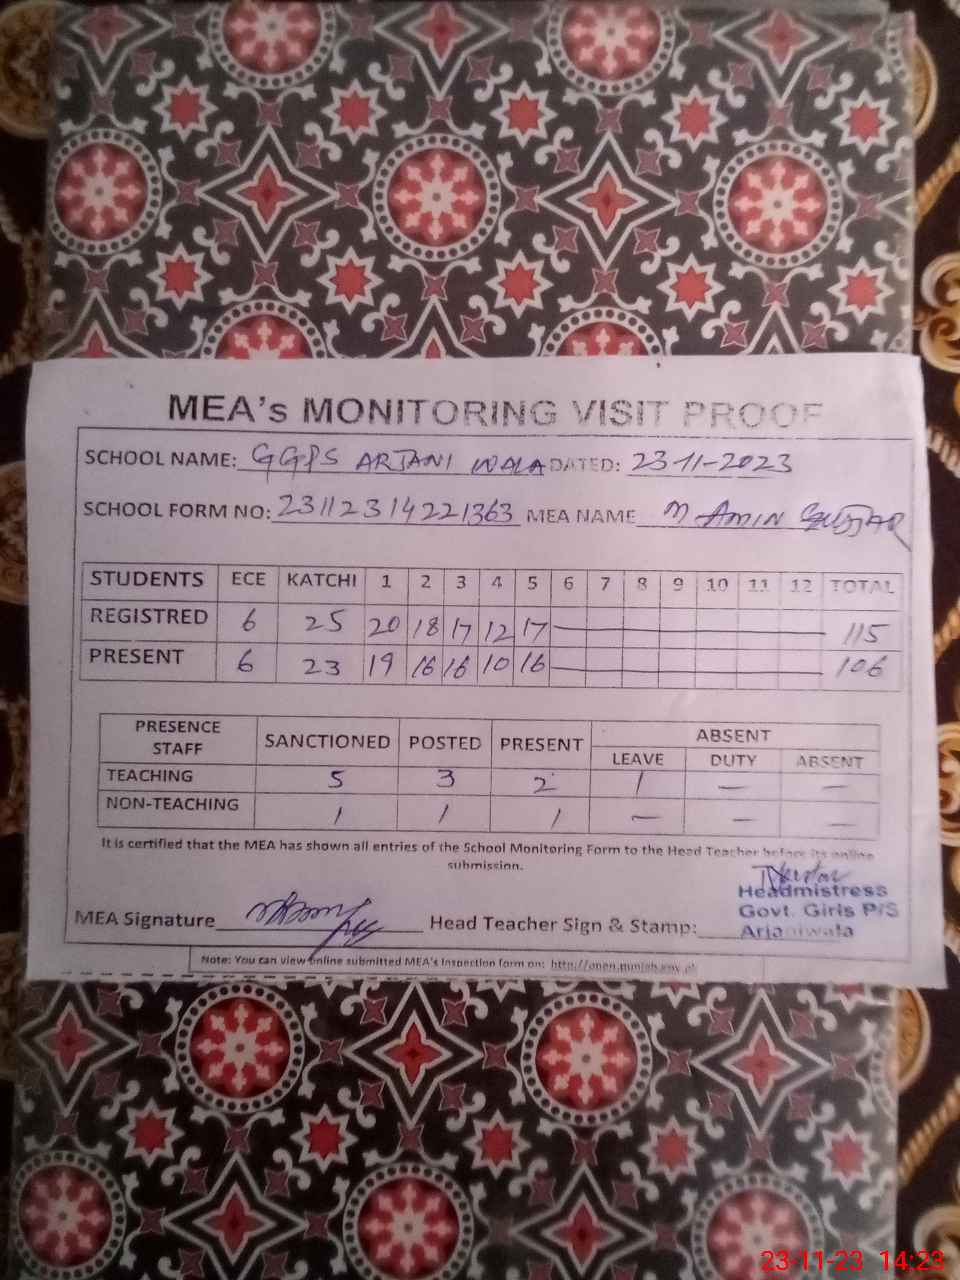 MEA's MONITORING VISIT PROOF
SCHOOL NAME: GGPS ARJANI WALA DATED: 23-11-2023
SCHOOL FORM NO: 231123142213​63 MEA NAME M AMIN GUJJAR
STUDENTS ECE KATCHI 1 2 3 4 5 6 7 8 9 10 11 12 TOTAL
REGISTRED 6 25 20 18 17 12 17 115
PRESENT 6 23 19 16 16 10 16 106
PRESENCE STAFF SANCTIONED POSTED PRESENT ABSENT
LEAVE DUTY ABSENT
TEACHING 5 3 2 1 — —
NON-TEACHING 1 1 1 — — —
It is certified that the MEA has shown all entries of the School Monitoring Form to the Head Teacher before its online
submission.
MEA Signature Head Teacher Sign & Stamp:
Headmistress
Govt. Girls P/S
Arjaniwala
Note: You can view online submitted MEA's Inspection form on: http://open.pmiu.gov.pk
23-11-23 14:23